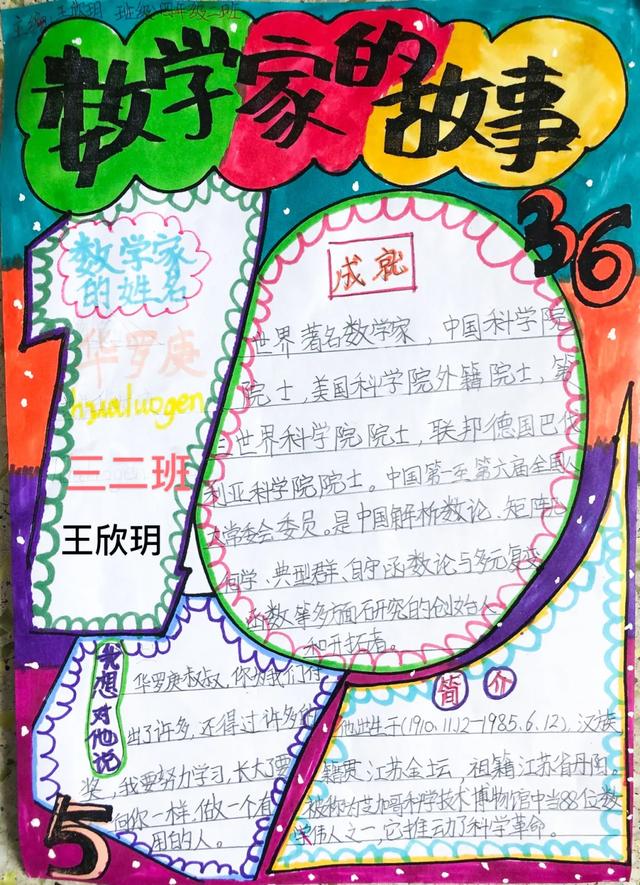 主编 王欣玥 班级 四年级二班
数学家的故事
36
数学家
的姓名
华罗庚
hualuogen
三二班
王欣玥
成就
世界著名数学家，中国科学院
院士，美国科学院外籍院士，第
三世界科学院院士，联邦德国巴伐
利亚科学院院士。中国第一至第六届全国人
大常委会委员。是中国解析数论、矩阵几
何学、典型群、自守函数论与多元复变
函数等多方面研究的创始人
和开拓者。
我想对他说
华罗庚叔叔，你为我们付
出了许多，还得过许多的
奖，我要努力学习，长大了要
向你一样，做一个有
用的人。
5
简介
他出生于(1910.11.12—1985.6.12)，汉族
籍贯江苏金坛，祖籍江苏省丹阳。
被称为芝加哥科学技术博物馆中当88位数
学伟人之一，它推动了科学革命。